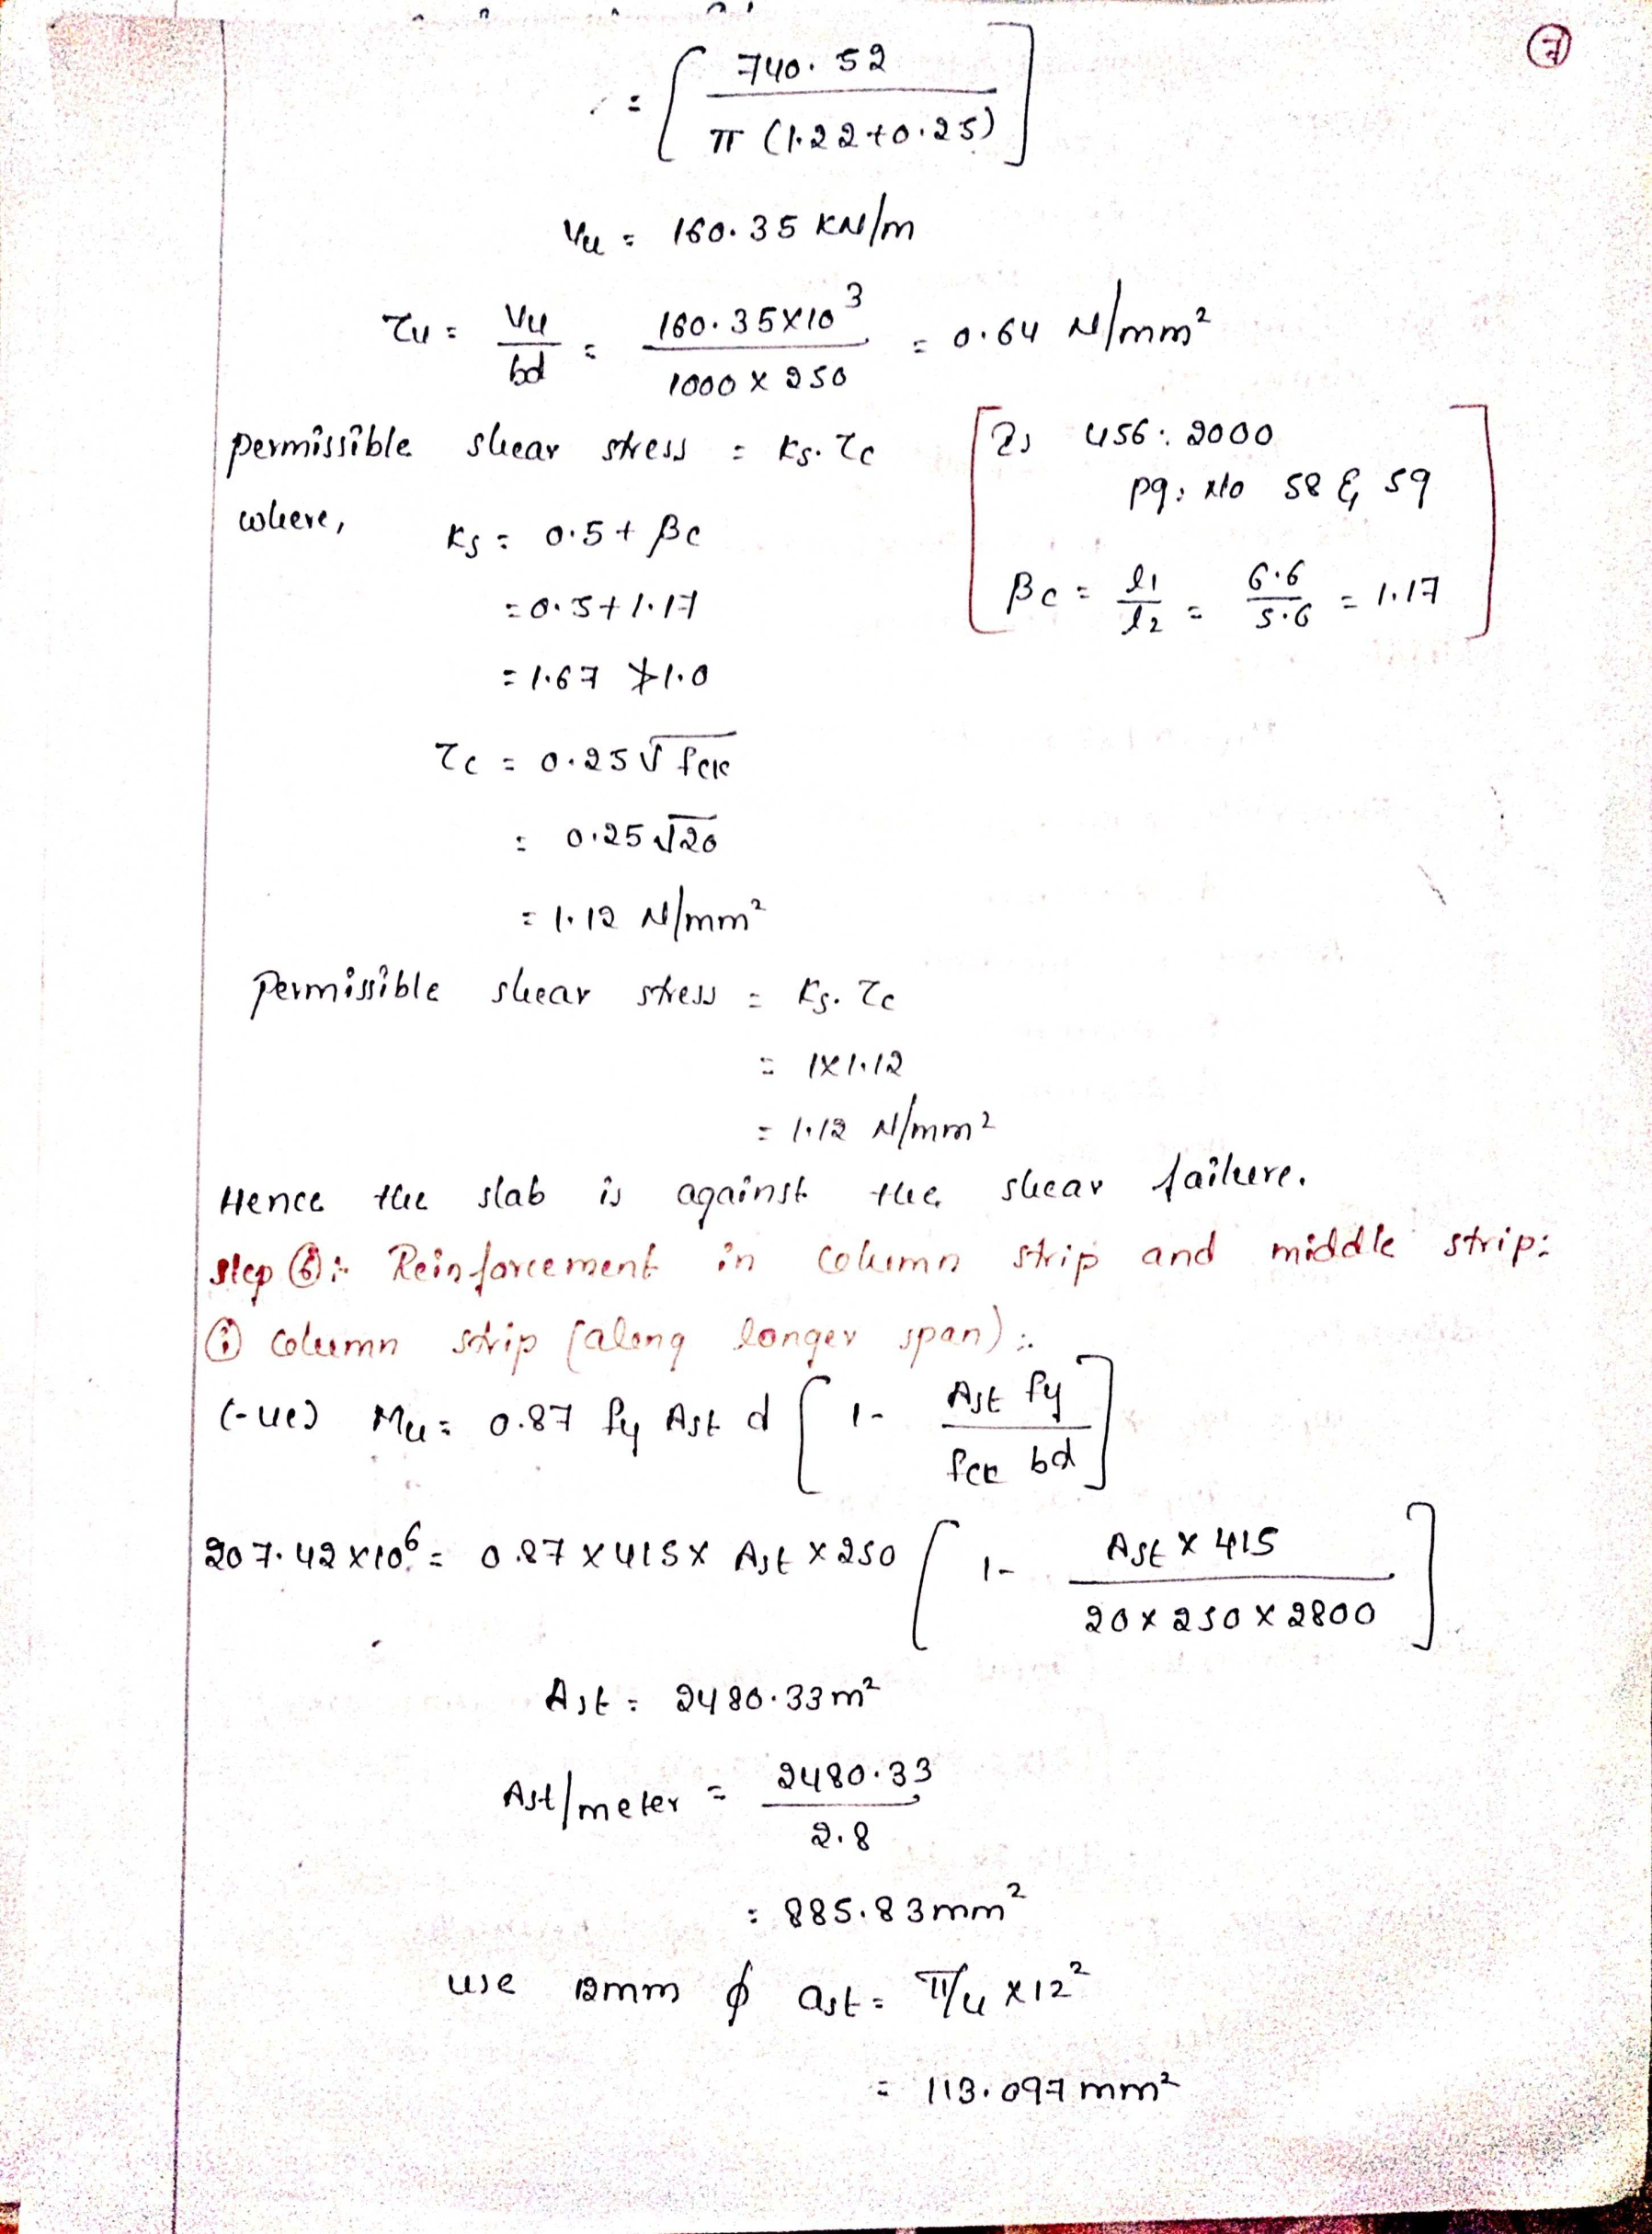 ⑦
= [ 740.52 / π (1.22+0.25) ]
Vu = 160.35 KN/m
τu = Vu / bd = 160.35×10³ / 1000 × 250 = 0.64 N/mm²
permissible shear stress = ks. τc
[ Is 456: 2000
pg: No 58 & 59
where,
ks = 0.5 + βc
βc = l1 / l2 = 6.6 / 5.6 = 1.17 ]
= 0.5 + 1.17
= 1.67 ≯ 1.0
τc = 0.25 √fck
= 0.25 √20
= 1.12 N/mm²
permissible shear stress = ks. τc
= 1×1.12
= 1.12 N/mm²
Hence the slab is against the shear failure.
Step ⑥:- Reinforcement in column strip and middle strip:
① column strip (along longer span):-
(-ve) Mu = 0.87 fy Ast d [ 1 - Ast fy / fck bd ]
207.42 ×10⁶ = 0.87 × 415 × Ast × 250 [ 1 - Ast × 415 / 20 × 250 × 2800 ]
Ast = 2480.33 m²
Ast/meter = 2480.33 / 2.8
= 885.83 mm²
use 12mm ϕ ast = π/4 ×12²
= 113.097 mm²